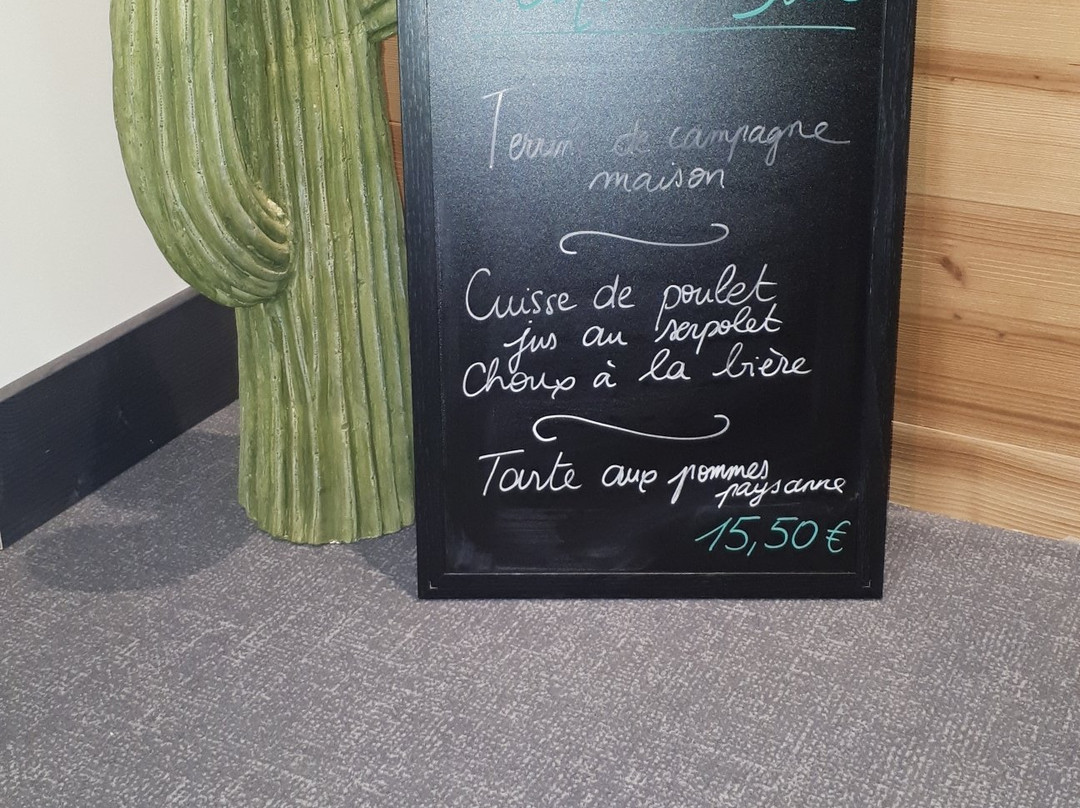 de campagne
maison
Cuisse de poulet
jus au serpolet
Choux à la bière
Tarte aux pommes
paysanne
15,50 €